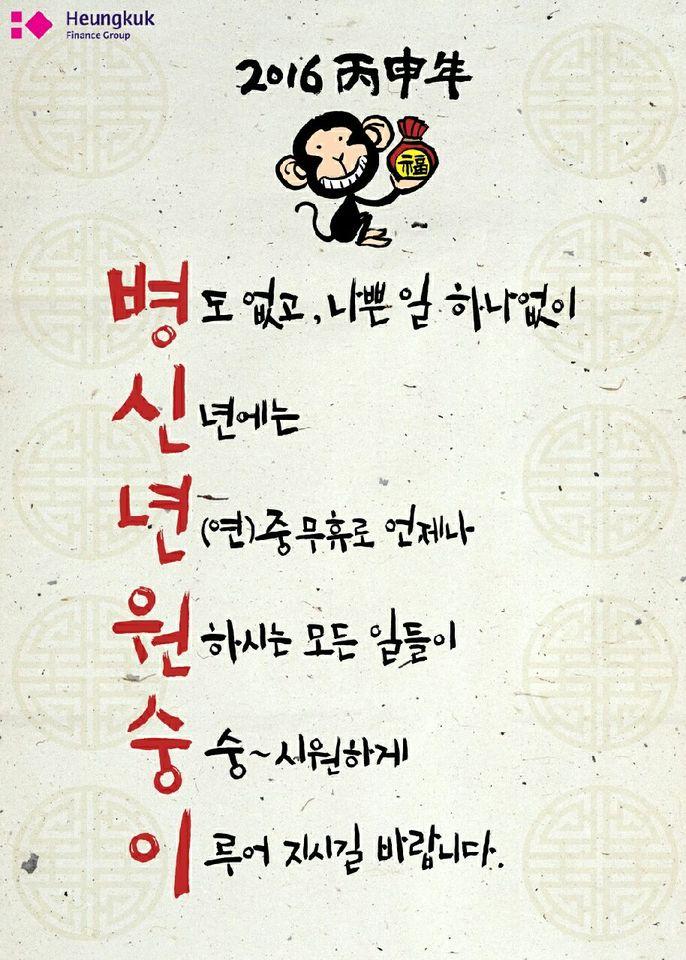 Heungkuk
Finance Group
2016 丙申年
福
병도 없고, 나쁜 일 하나없이
신년에는
년(연)중무휴로 언제나
원하시는 모든 일들이
숭숭~시원하게
이루어 지시길 바랍니다.